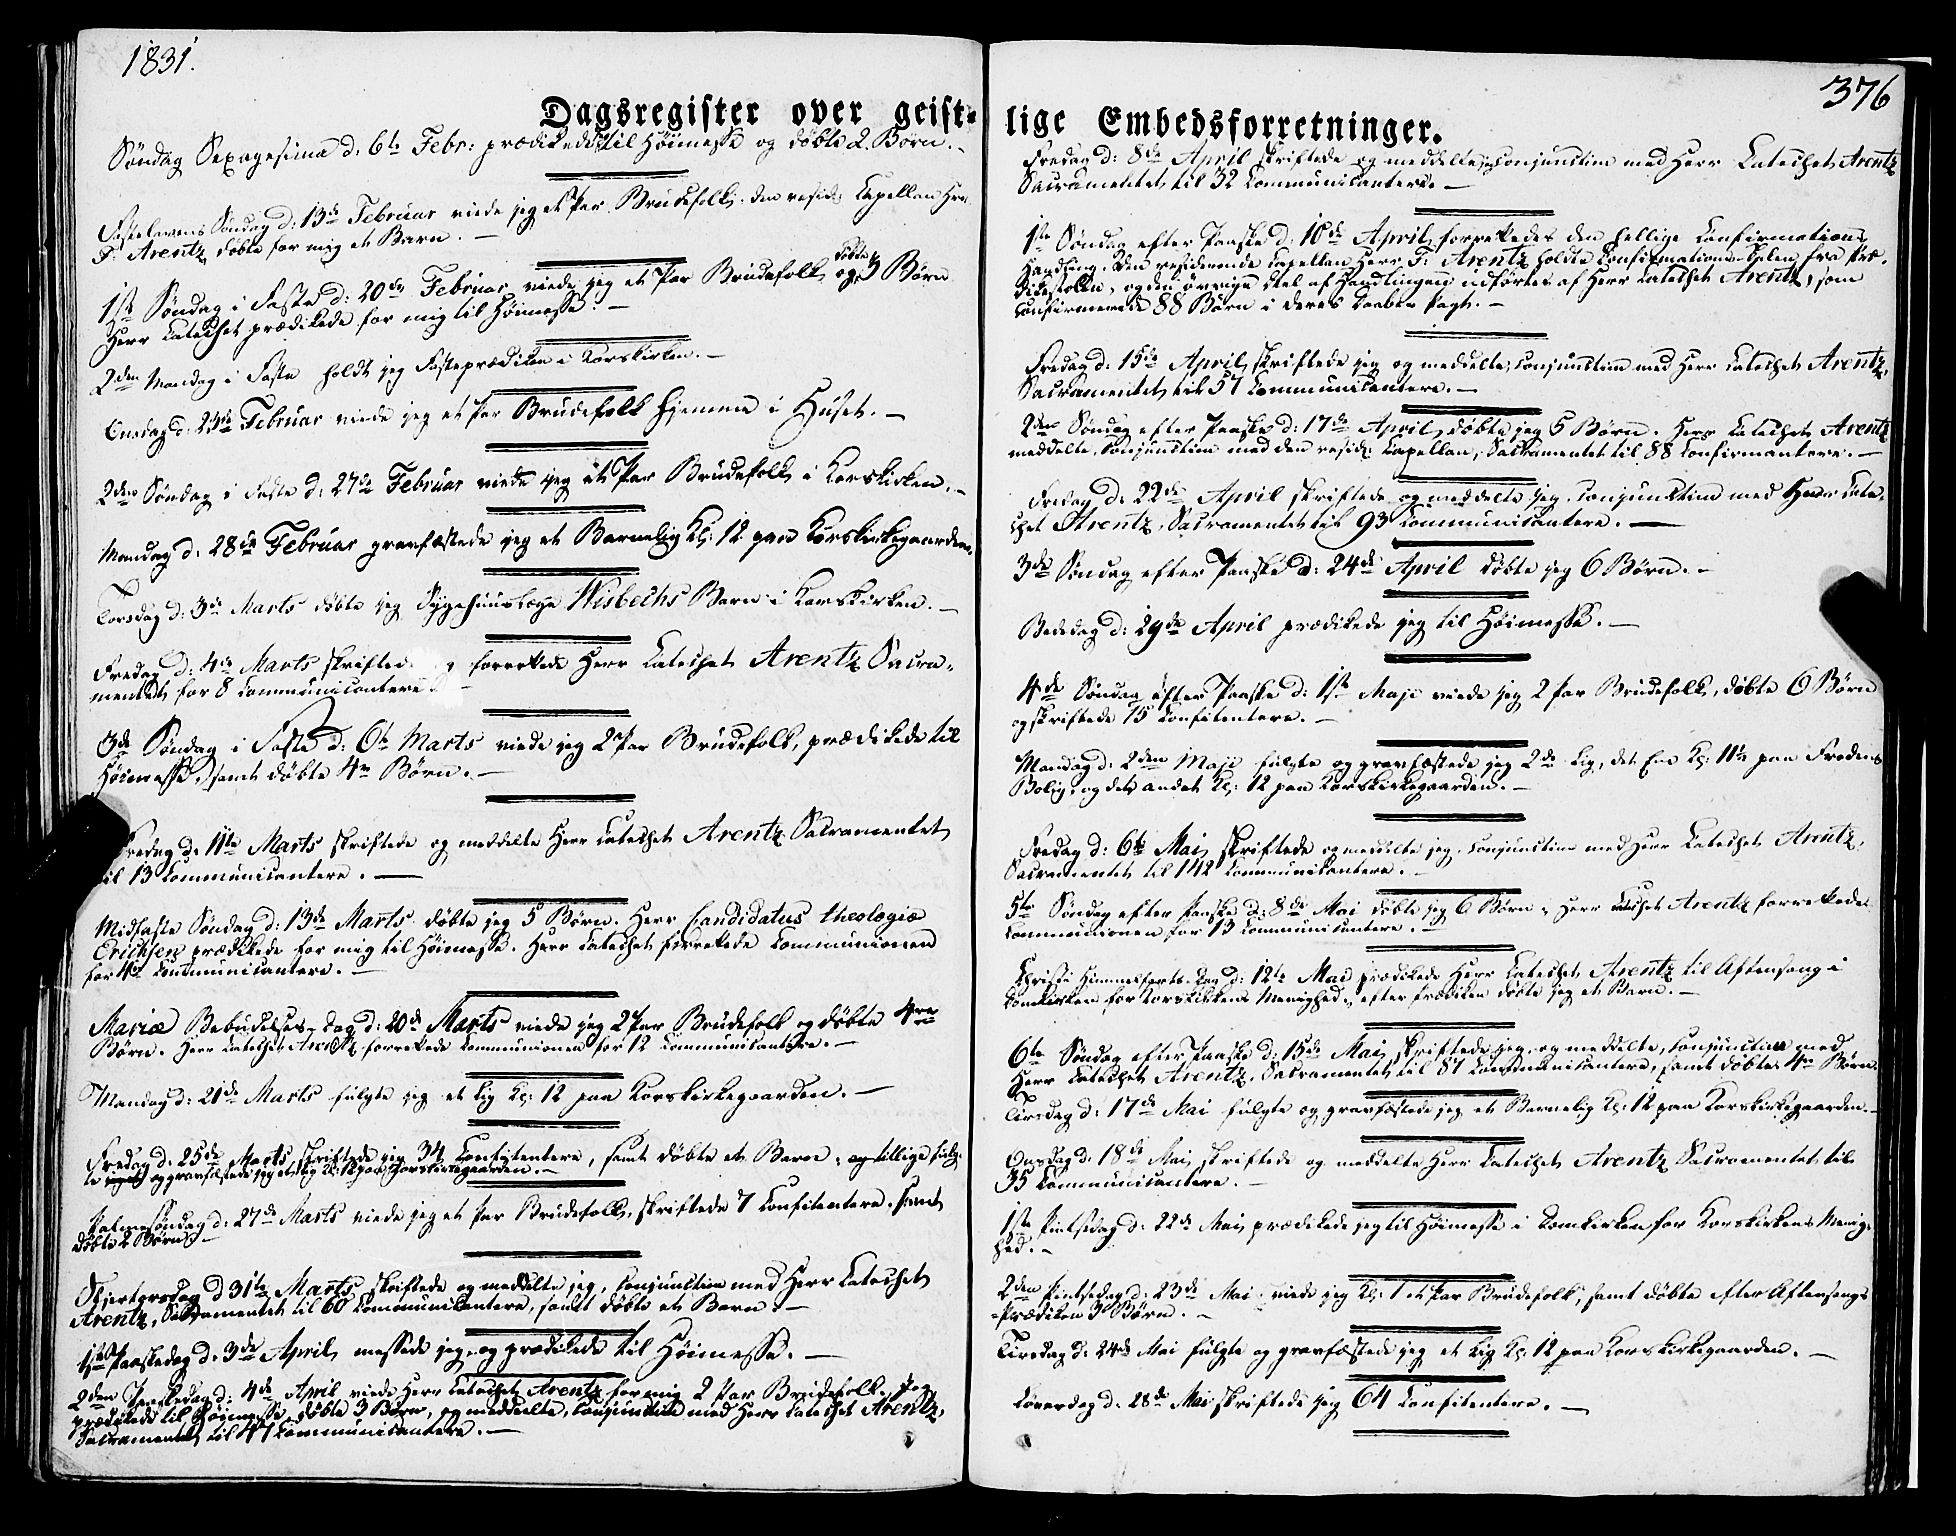 1831.
Dagsregister over geist-
Søndag Sexagesima d: 6te Febr: prædikede til Høimesse og døbte 2 Børn.
Fastelavens Søndag d: 13de Februar viede jeg et Par Brudefolk. den resid: Capellan Herr
F: Arentz døbte for mig et Barn. —
1ste Søndag i Faste d: 20de Februar viede jeg et Par Brudefolk og døbte 3 Børn
Herr Catechet prædikede for mig til Høimesse. —
2den Mandag i Faste holdt jeg Fasteprædiken i Korskirken. —
Onsdag d: 23de Februar viede jeg et Par Brudefolk hjemme i Huset. —
2den Søndag i Faste d: 27de Februar viede jeg et Par Brudefolk i Korskirken. —
Mandag d: 28de Februar gravfæstede jeg et Barnelig Kl: 12 paa Korskirkegaarden.
Torsdag d: 3de Marts døbte jeg Sygehuuslæge Wisbechs Barn i Korskirken. —
Fredag d: 4de Marts skriftede forrettede Herr Catechet Arentz Sacra-
mentet for 8 Communicantere
3de Søndag i Faste d: 6te Marts viede jeg 2 Par Brudefolk, prædikede til
Høimesse, samt døbte 4re Børn. —
Fredag d: 11te Marts skriftede og meddelte Herr Catechet Arentz Sacramentet
til 13 Communicantere. —
Midfaste Søndag d: 13de Marts døbte jeg 5 Børn. Herr Candidatus theologiæ
Erichsen prædikede for mig til Høimesse. Herr Catechet forrettede Communionen
for 4re Communicantere. —
Mariæ Bebudelses-dag d: 20de Marts viede jeg 2 Par Brudefolk og døbte 4re
Børn. Herr Catechet Arentz forrettede Communionen for 12 Communicantere. —
Mandag d: 21de Marts fulgte jeg et Lig Kl: 12 paa Korskirkegaarden. —
Fredag d: 25de Marts skriftede jeg 34 Confitentere, samt døbte et Barn, og tillige fulg-
te og gravfæstede jeg et Lig Kl: 12 paa Korskirkegaarden. —
Palmesøndag d: 27de Marts viede jeg et Par Brudefolk, skriftede 7 Confitentere, samt
døbte 2 Børn. —
Skjertorsdag d 31te Marts skriftede og meddelte jeg, conjunctim med Herr Catechet
Arentz, Sacramentet til 60 Communicantere, samt døbte et Barn. —
1ste Paaskedag d: 3de April messede jeg og prædikede til Høimesse. —
2den Paaskedag d: 4de April viede Herr Catechet Arentz for mig 2 Par Brudefolk. Jeg
prædikede til Høimesse, døbte 3 Børn, og meddelte, conjunctim med Herr Catechet Arentz,
Sacramentet til 47 Communicantere. —
376
lige Embedsforretninger.
Fredag d: 8de April skriftede og meddelte, conjunctim med Herr Catechet Arentz
Sacramentet til 32 Communicantere. —
1ste Søndag efter Paaske d: 10de April forrettedes den hellige Confirmations
Handling. Den residerende Capellan Herr F: Arentz holdte Confirmations-Talen fra Præ-
dikestolen, og den øvrige Deel af Handlingen udførtes af Herr Catechet Arentz, som
confirmerede 88 Børn i deres Daabes Pagt. —
Fredag d: 15de April skriftede jeg og meddelte, conjunctim med Herr Catechet Arentz,
Sacramentet til 57 Communicantere. —
2den Søndag efter Paaske d: 17de April døbte jeg 5 Børn. Herr Catechet Arentz
meddelte, conjunctim med den resid: Capellan, Sacramentet til 88 Confirmantere. —
Fredag d: 22de April skriftede og meddelte jeg, conjunctim med Herr Cate-
chet Arentz, Sacramentet til 93 Communicantere. —
3de Søndag efter Paaske d: 24de April døbte jeg 6 Børn. —
Bededag d: 29de April prædikede jeg til Høimesse. —
4de Søndag efter Paaske d: 1ste Maji viede jeg 2 Par Brudefolk, døbte 6 Børn
og skriftede 15 Confitentere. —
Mandag d: 2den Maji fulgte og gravfæstede jeg 2de Lig, det Ene Kl: 11½ paa Fredens
Bolig, og det andet Kl: 12 paa Korskirkegaarden. —
Fredag d: 6te Mai skriftede og meddelte jeg, conjunctim med Herr Catechet Arentz,
Sacramentet til 142 Communicantere. —
5te Søndag efter Paaske d: 8de Mai døbte jeg 6 Børn. Herr Catechet Arentz forrettede
Communionen for 13 Communicantere. —
Christi Himmelfarts-Dag d: 12te Mai prædikede Herr Catechet Arentz til Aftensang i
Domkirken for Korskirkens Menighed, efter Prædiken døbte jeg et Barn. —
6te Søndag efter Paaske d: 15de Mai skriftede jeg og meddelte, conjunctim med
Herr Catechet Arentz, Sacramentet til 87 Communicantere, samt døbte 4re Børn.
Tirsdag d: 17de Mai fulgte og gravfæstede jeg et Barnelig Kl: 12 paa Korskirkegaarden. —
Onsdag d: 18de Mai skriftede og meddelte Herr Catechet Arentz Sacramentet til
35 Communicantere. —
1ste Pintsedag d: 22de Mai prædikede jeg til Høimesse i Domkirken for Korskirkens Menig-
hed. —
2den Pintsedag d: 23de Mai viede jeg Kl: 1 et Par Brudefolk, samt døbte efter Aftensangs
-Prædiken 3 Børn. —
Tirsdag d: 24de Mai fulgte og gravfæstede jeg et Lig Kl: 12 paa Korskirkegaarden. —
Løverdag d: 28de Mai skriftede jeg 64 Confitentere. —